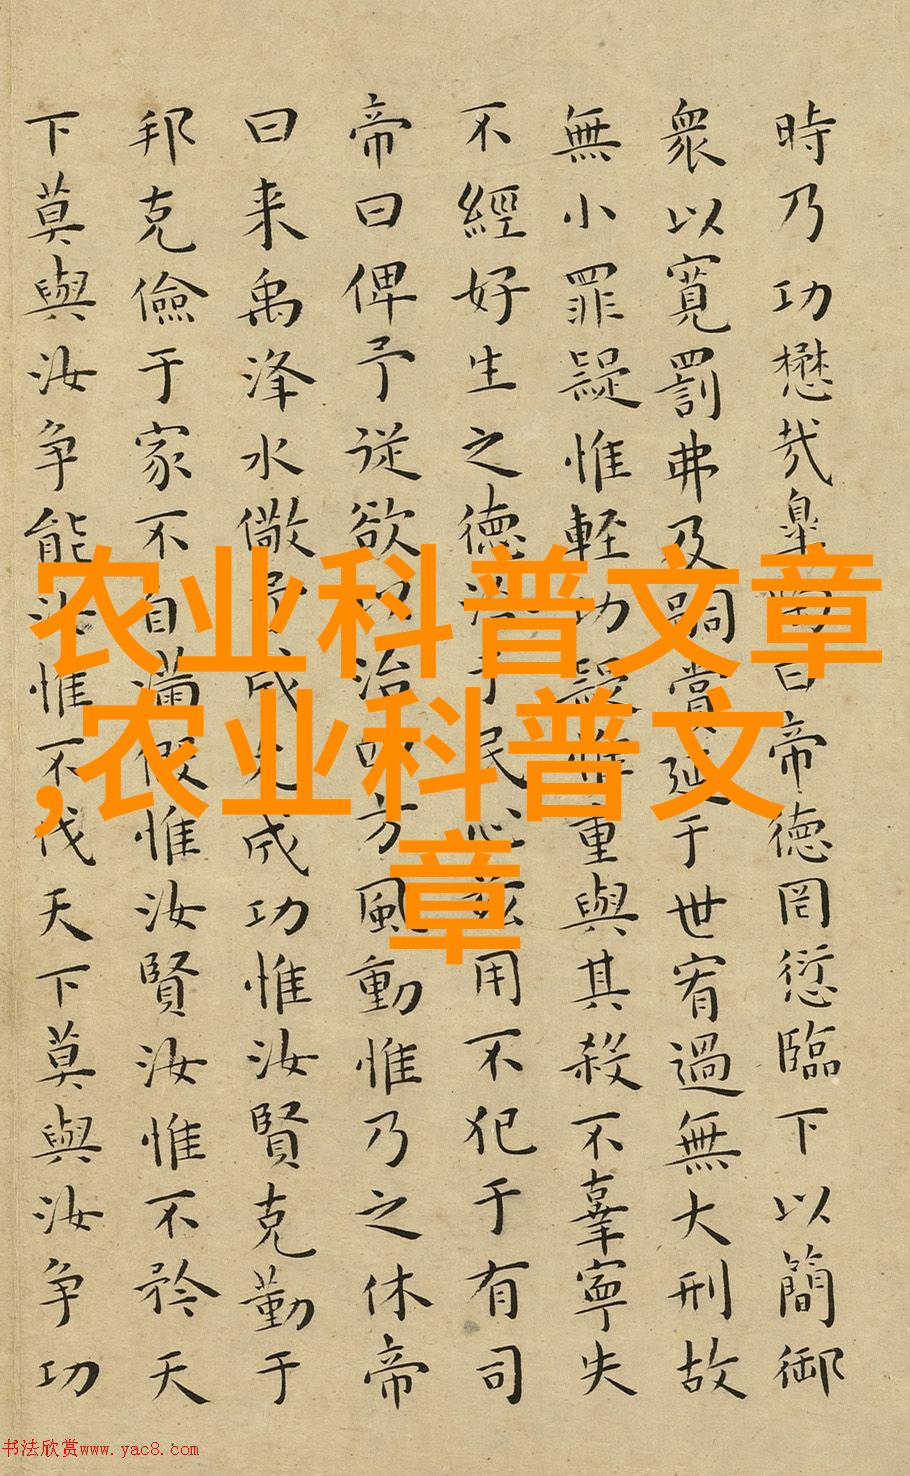 時乃功懋哉皐陶曰帝德罔愆臨下以簡御
衆以寬罰弗及嗣賞延于世宥過無大刑故
無小罪疑惟輕功疑惟重與其殺不辜寧失
不經好生之德洽于民心茲用不犯于有司
帝曰俾予從欲以治四方風動惟乃之休帝
曰来禹洚水儆予成允成功惟汝賢克勤于
邦克儉于家不自滿假惟汝賢汝惟不矜天
下莫與汝争能汝惟不伐天下莫與汝争功
农业科普文章
,农业科普文
章
书法欣赏www.yac8.com